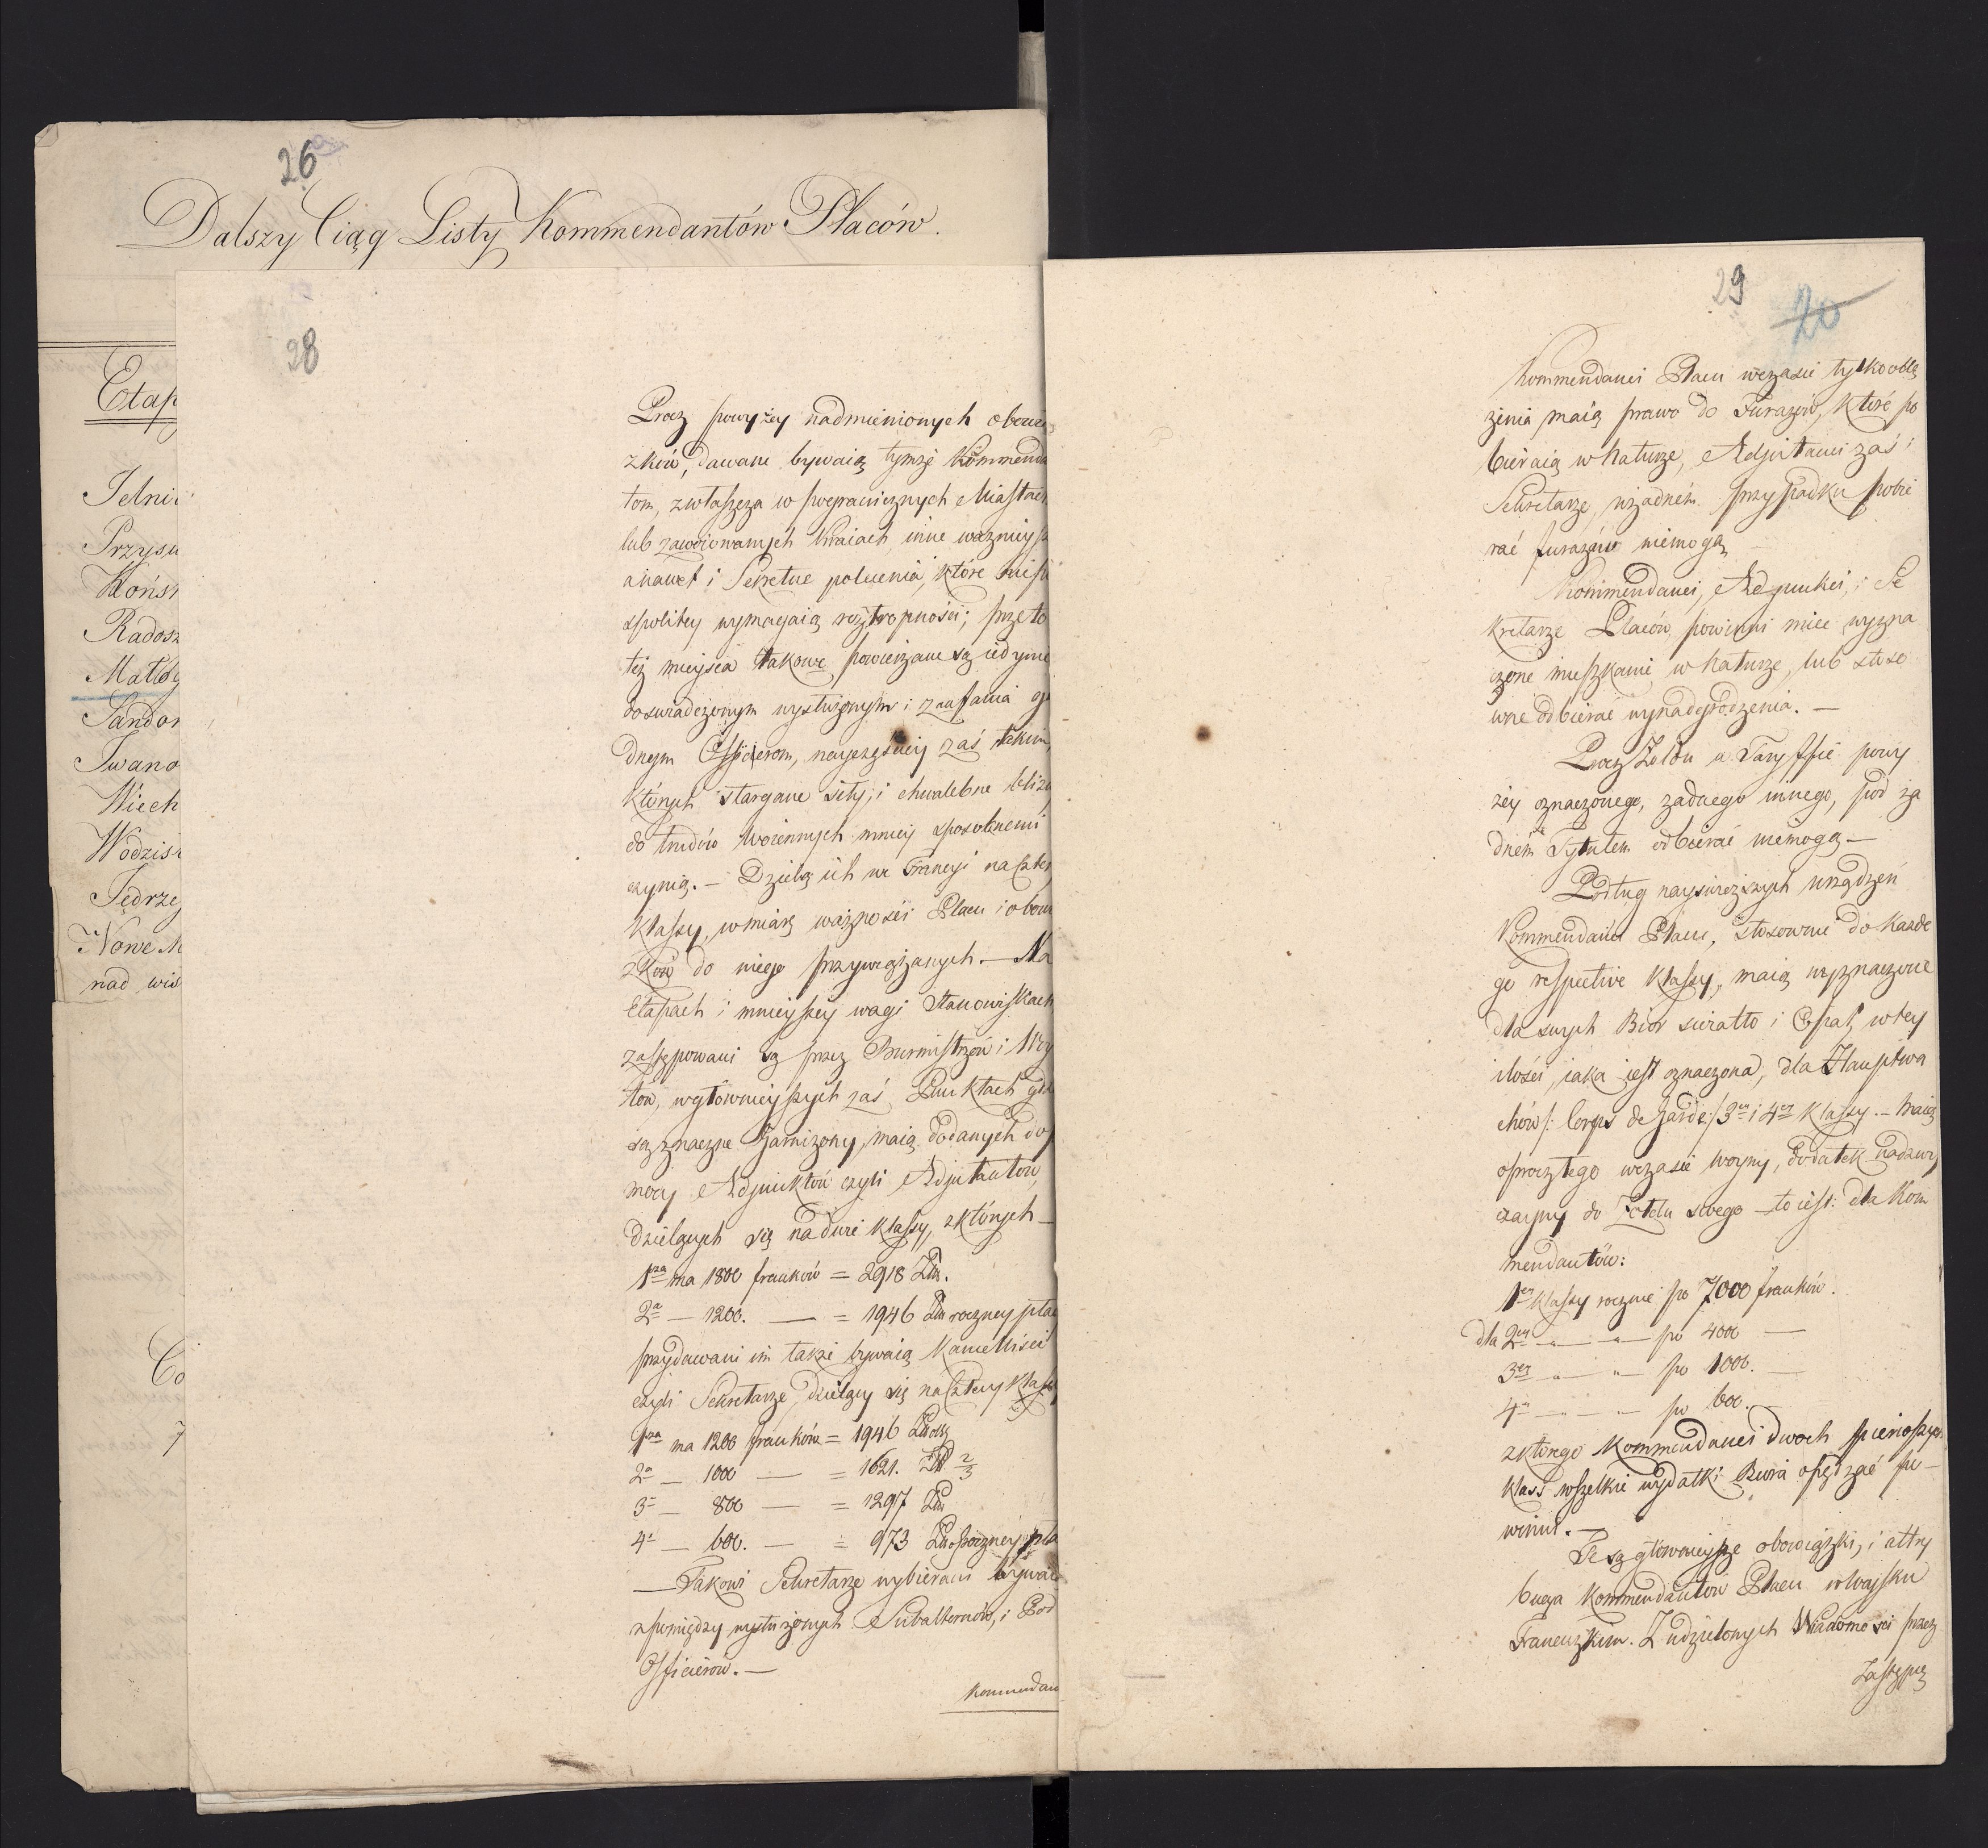 26
Dalszy Ciąg Listy Kommendantów Placów.
Etap
Jelni
Przysu
Końsk
Radosz
Małog
Sandom
Iwano
Wiech
Wodzis
Jędrze
Nowe M
nad wis
Co
28
Procz powyżey nadmienionych obowią
zków, dawane bywaią tymże Kommenda
tom, zwłaszcza w pogranicznych Miastach
lub zawoiowanych Kraiach, inne ważnieysz
a nawet i Sekretne polecenia, które niepo
spolitey wymagaią roztropności; przeto
też mieysca takowe powierzane są iedyni
doswiadczonym wysłużonym i zaufania go
dnym Officierom, nayczęściey zaś takim,
których stargane siły, i chwalebne blizn
do trudów woiennych mniey sposobnemi
czynią. — Dzielą ich we Francyi na czter
Klassy, w miarę ważności Placu i obow
zków do niego przywiązanych. — Na
Etapach i mnieyszey wagi Stanowiskach
zastępowani są przez Burmistrzów i Wóy
tów, w główniejszych zaś Punktach gdz
są znaczne Garnizony, maią dodanych do
mocy Adjunktów czyli Adjutantów,
dzielących się na dwie Klassy, z których —
1sza ma 1800 franków = 2918 Złł.
2a — 1200. — = 1946 Złł roczney pła
przydawani im także bywaią Kancellisci
czyli Sekretarze, dzielący się na cztery Klass
1sza ma 1200 franków = 1946 Złł
2a — 1000 — = 1621. Złł 2/3
3a — 800 — = 1297 Złł
4a — 600. — = 973 Złł roczney pła
— Takowi Sekretarze wybierani bywaią
z pomiędzy wysłużonych Subalternów, i Pod
Officierów. —
Kommendan
29
20
Kommendanci Placu w czasie tylko oblę
żenia maią prawo do Furazów, które po
bieraią w Naturze, Adjutanci zaś i
Sekretarze, w żadném przypadku pobie
rać furazów niemogą —
Kommendanci, Adjunkci, i Se
kretarze Placów powinni mieć wyzna
czone mieszkanie w Naturze, lub stoso
wne odbierać wynadgrodzenia. —
Procz Żołdu w Taryffie powy
żey oznaczonego, żadnego innego, pod ża
dném Tytułem odbierać niemogą —
Podług nayświeższych urządzeń
Kommendanci Placu, stosownie do każde
go respective Klassy, maią wyznaczone
dla swych Biór swiatło i Opał, w tey
ilości, iaka iest oznaczona, dla Hauptwa
chów /: Corps de Garde:/ 3ey i 4ey Klassy. — Maią
oprócz tego w czasie Woyny, dodatek nadzwy
czayny do Żołdu swego — to iest: dla Kom
mendantów:
1ey Klassy rocznie po 7000 franków.
dla 2ey — " — " — po 4000 —
3ey — " — " — po 1000. —
4ey — " — " — po 600. —
z którego Kommendanci dwoch pierwszych
klass wszelkie wydatki Biura opędzać po-
winni. —
Te są główniejsze obowiązki, i attry
bucya Kommendantów Placu w Woysku
Francuzkim. Z udzielonych Wiadomosci przez
Zastępcę